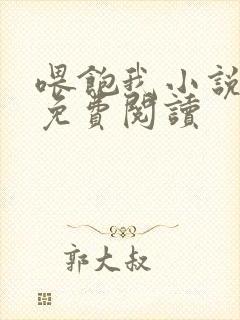 喂飽我 小說
免費閱讀
郭大叔